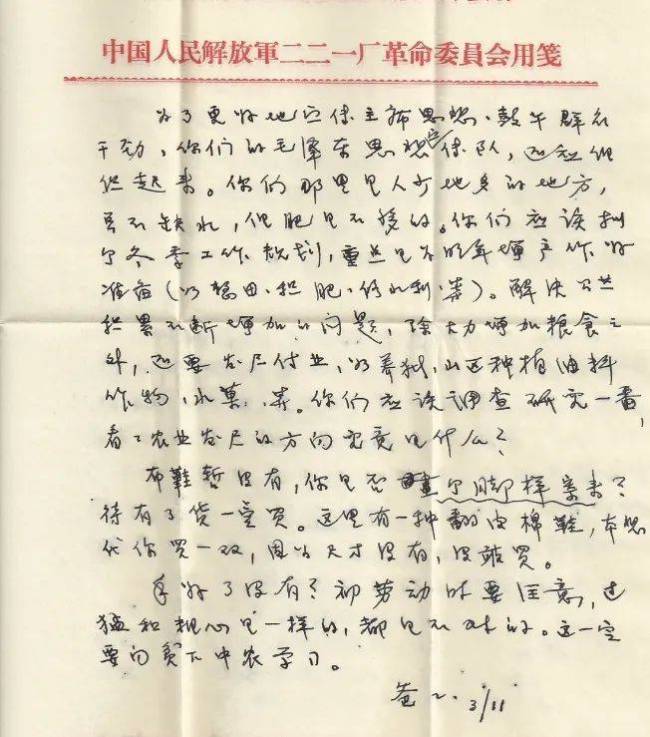 中国人民解放軍二二一厂革命委員会用笺
为了更好地宣传主席思想、鼓午群众
干劲，你们的毛泽东思想宣传队，应组织
起来。你们那里是人少地多的地方，
虽不缺水，但肥是不够的。你们应该
个冬季工作规划，重点是为明年增产作好
准备（如 田、积肥、修水利、等）。解决公共
积累不断增加的问题，除大力增加粮食之
外，还要发展付业，如养猪，山区种植油料
作物、水菓、等。你们应该调查研究一番，
看看农业发展的方向究竟是什么？
布鞋暂没有，你是否画个脚样寄来？
待有了货一定买。这里有一种翻皮棉鞋，本想
代你买一双，因为尺寸没有，没敢买。
手好了没有？初劳动时要注意，过
猛和粗心是一样的，都是不对的。这一定
要向贫下中农学习。
爸爸. 3/11